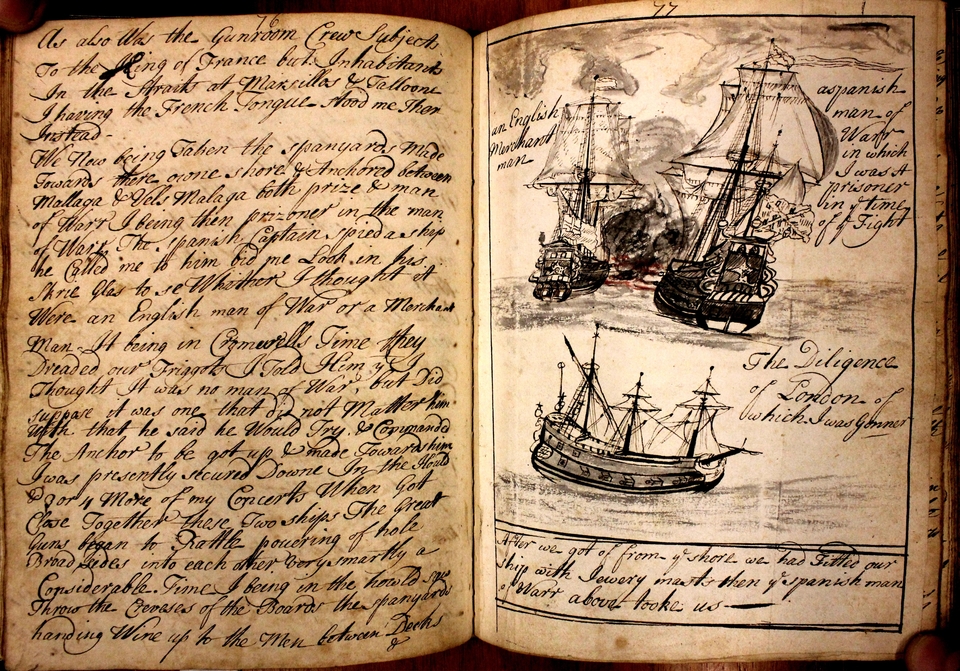 76
As also Was the Gunroom Crew Subjects
To the King of France but Inhabitants
In the straits at Marseilles & Talloone
I having the French Tongue stood me Then
Instead -
We Now being Taken the spanyards Made
Towards there owne shore & Anchored between
Mallaga & Vels Malaga both prize & man
of Warr I being then prizoner in the man
of Warr. The spanish Captain spied a ship
he Called me to him bid me Look in his
Skrie Glas to se Whither I thought it
Were an English man of War or a Merchant
Man - It being in Cromwells Time they
Dreaded our Frigots I Told Him yt I
Thought It was no man of War, but Did
suppose it was one that did not Matter him
With that he said he Would Try & Commanded
The Anchor to be got up & made Towards him
I was presently secured Downe In the Hould
& 3 or 4 More of my Concerts When Got
Close Together these Two ships The Great
Guns began to Rattle powering of hole
Broad sides into each other very smartly a
Considerable Time I being in the howld saw
Throw the Creveses of the Boards the spanyards
handing Wine up to the Men between Decks
&
77
an English
Merchant
man
a spanish
man of
Warr
in which
I was A
prisoner
in ye time
of ye Fight
The Diligence
of London of
which I was Gonner
After we got of from ye shore we had Fitted our
ship with Jewery masts then ye spanish man
of Warr above tooke us